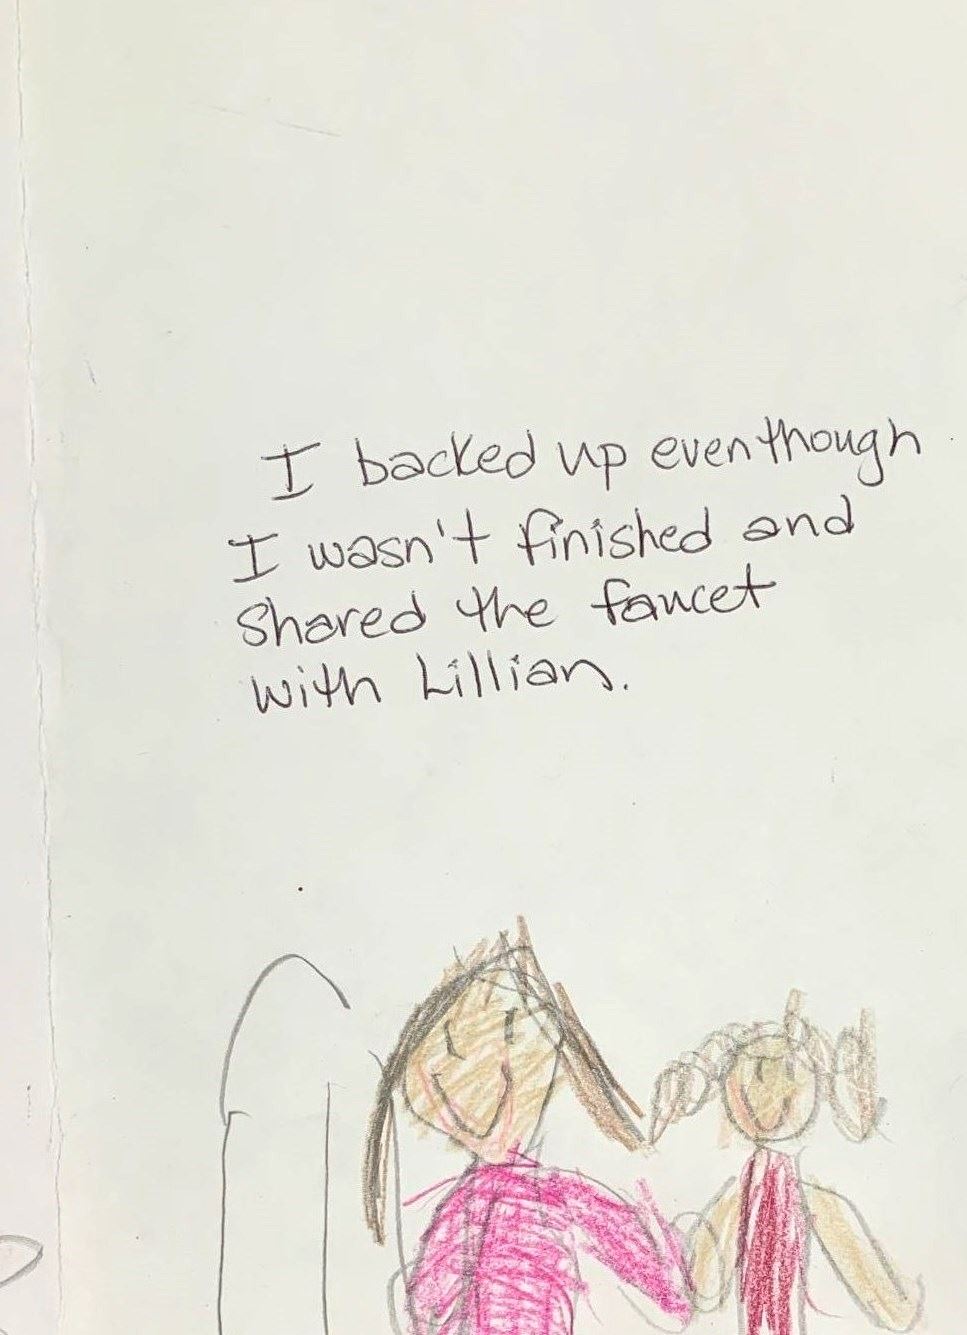 I backed up eventhough
I wasn't finished and
shared the faucet
with Lillian.